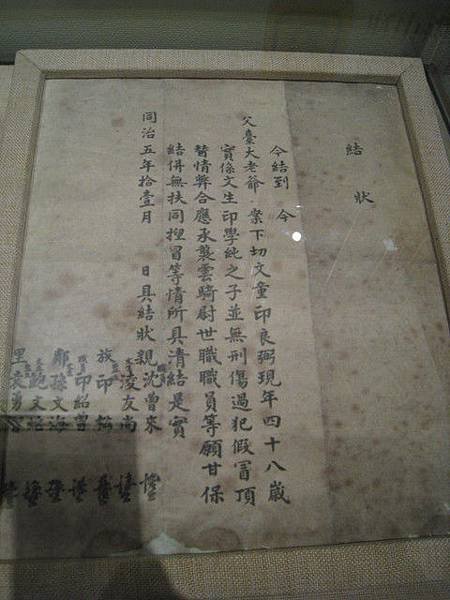 結狀
今結到 今
父臺大老爺 案下切文童印良弼現年四十八歲
實係文生印學純之子並無刑傷過犯假冒頂
替情弊合應承襲雲騎尉世職職員等願甘保
結併無扶同捏冒等情所具清結是實
同治五年拾壹月 日具結狀親沈曾來
凌友尚
族 印
印紹曾
鄰 孫文海
鮑文
里 袁勇